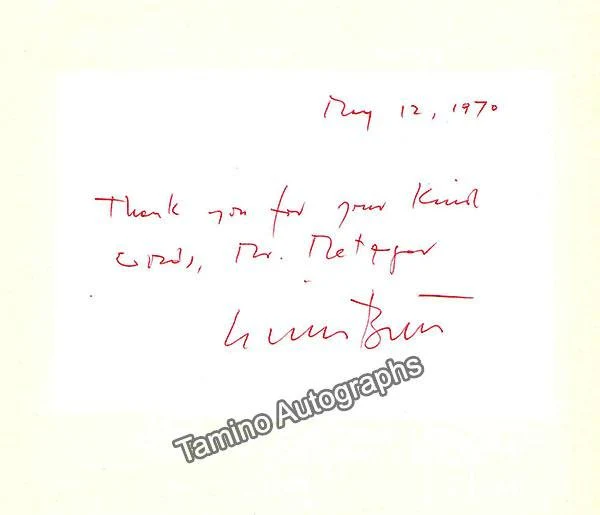 May 12, 1970
Thank you for your kind
words, Mr. Metzger
Tamino Autographs